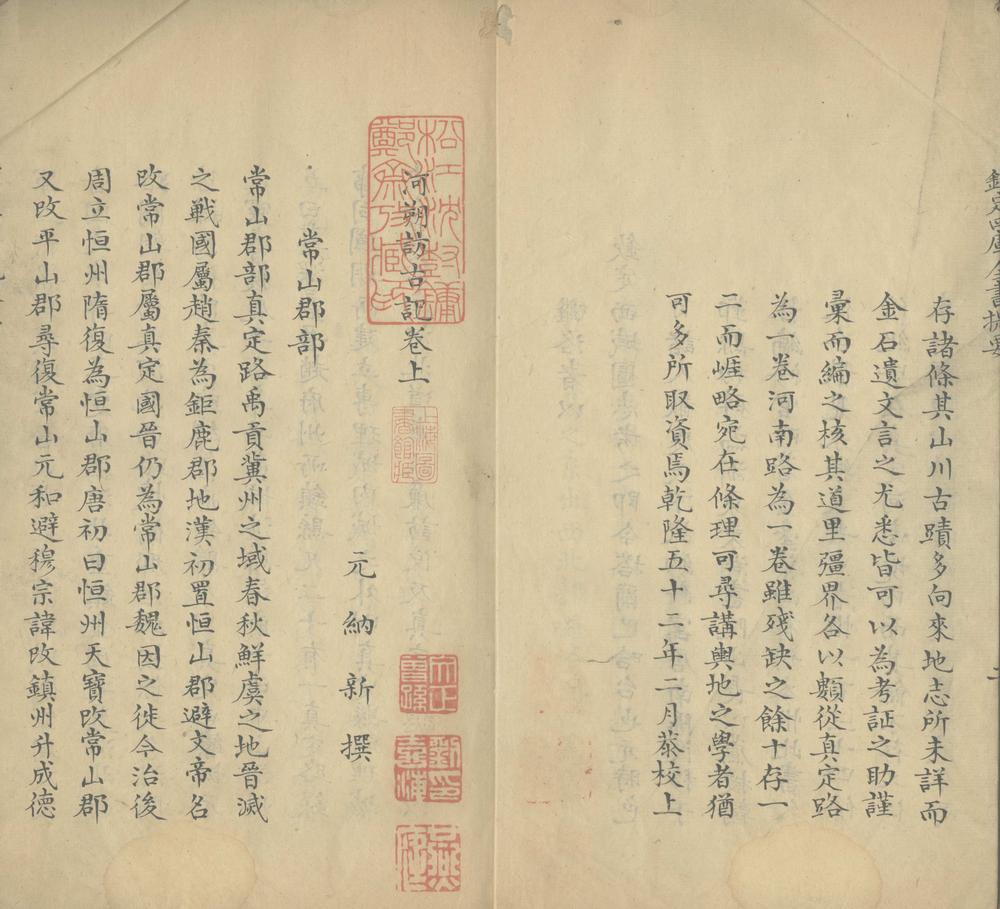 存諸條其山川古蹟多向來地志所未詳而
金石遺文言之尤悉皆可以為考証之助謹
彙而編之核其道里疆界各以類從真定路
為一卷河南路為一卷雖殘缺之餘十存一
二而崖略宛在條理可尋講輿地之學者猶
可多所取資焉乾隆五十二年二月恭校上
河朔訪古記卷上
元 納新 撰
常山郡部
常山郡部真定路禹貢冀州之域春秋鮮虞之地晉滅
之戰國屬趙秦為鉅鹿郡地漢初置恒山郡避文帝名
改常山郡屬真定國晉仍為常山郡魏因之徙今治後
周立恒州隋復為恒山郡唐初曰恒州天寶改常山郡
又改平山郡尋復常山元和避穆宗諱改鎮州升成德